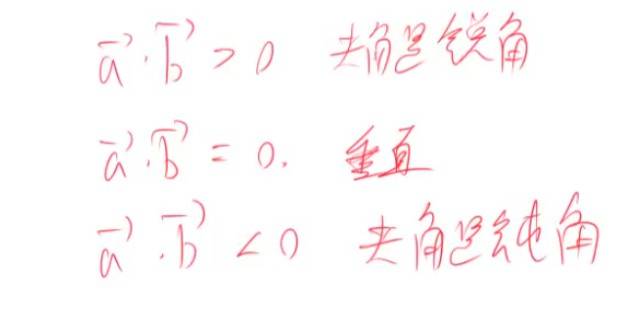 $\vec{a} \cdot \vec{b} > 0$ 夹角是锐角
$\vec{a} \cdot \vec{b} = 0.$ 垂直
$\vec{a} \cdot \vec{b} < 0$ 夹角是钝角